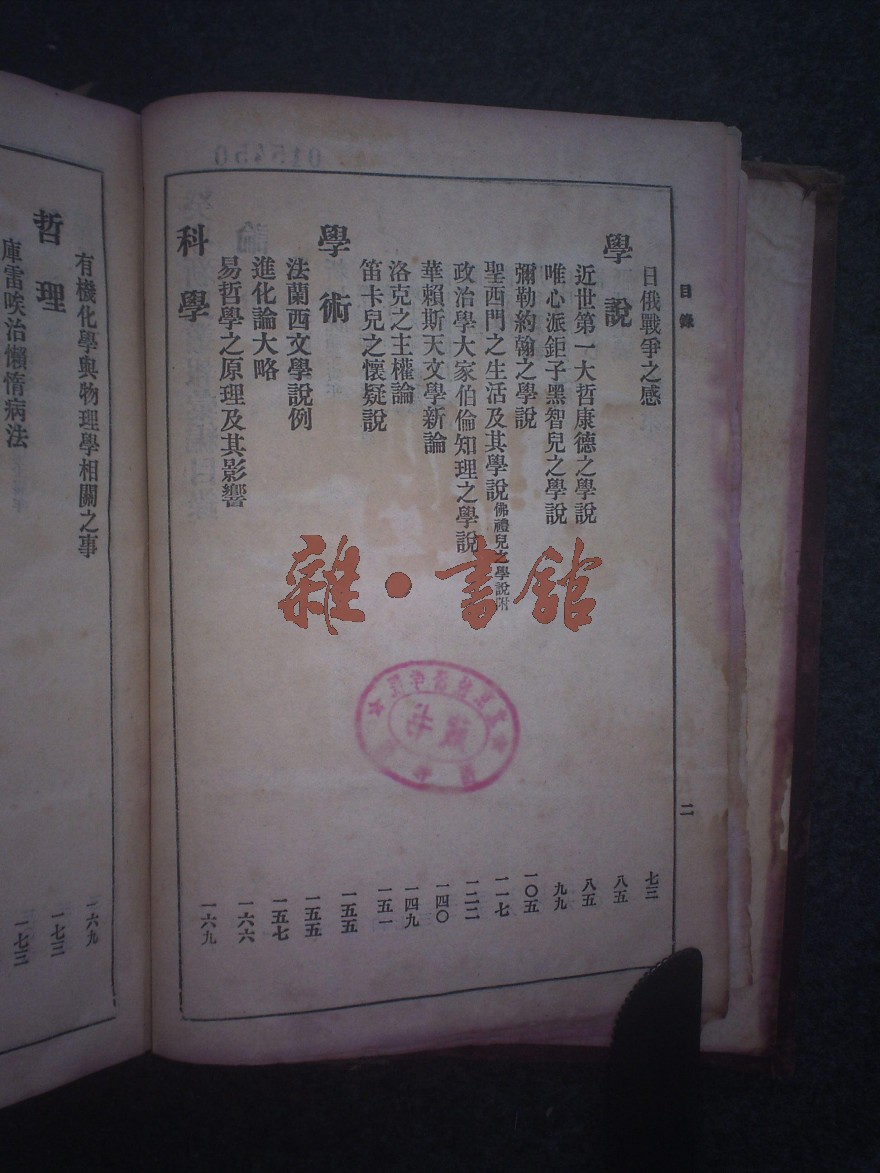 目錄
二
日俄戰爭之感 七三
學說 八五
近世第一大哲康德之學說 八五
唯心派鉅子黑智兒之學說 九九
彌勒約翰之學說 一〇五
聖西門之生活及其學說佛禮兒之學說附 一一七
政治學大家伯倫知理之學說 一二二
華賴斯天文學新論 一四〇
洛克之主權論 一四九
笛卡兒之懷疑說 一五一
學術 一五五
法蘭西文學說例 一五五
進化論大略 一五七
易哲學之原理及其影響 一六六
科學 一六九
有機化學與物理學相關之事 一六九
哲理 一七三
庫雷唉治懶惰病法 一七三
雜·書館
藏书
015450